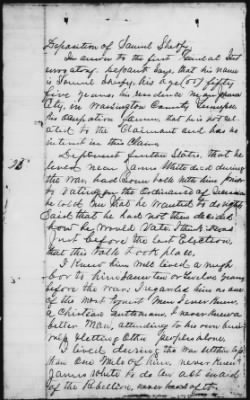 Deposition of Samuel
In answer to the first General Int
errogatory Deponent Says, that his name
is Samuel his age (55) fifty
five years, his residence
City, in Washington County
his Occupation Farmer, that he is not rel
ated to the Claimant and has no
interest in this Claim
25
Deponent further States, that he
lived near James White died during
the War, had done talk with him prior
to Voting on the Ordinance of Secession
he told me that he wanted to do right
Said that he had not then decided
how he would Vote I think it was
just before the last Election,
that this talk took place.
I knew him well lived a neigh
bor to him ten or twelve years
before the war, I regarded him as one
of the most Men I ever knew,
a Christian Gentleman, I never knew a
better Man, attending to his own busi
ness & letting Other people alone
I lived during the War
than One Mile of him, never knew
James White to do an act in aid
of the Rebellion, never heard of it